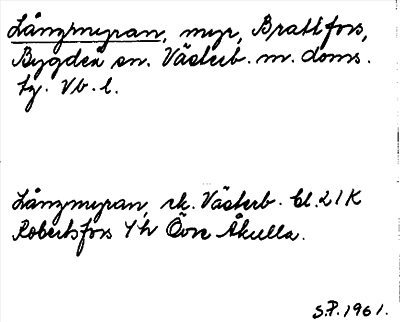 Långmyran, myr, Brattfors,
Bygdeå sn. Västerb. m. doms.
tg. Vb. l.
Långmyran, rk. Västerb. bl. 21K
Robertsfors 4h Övre Åkulla.
S.P. 1961.